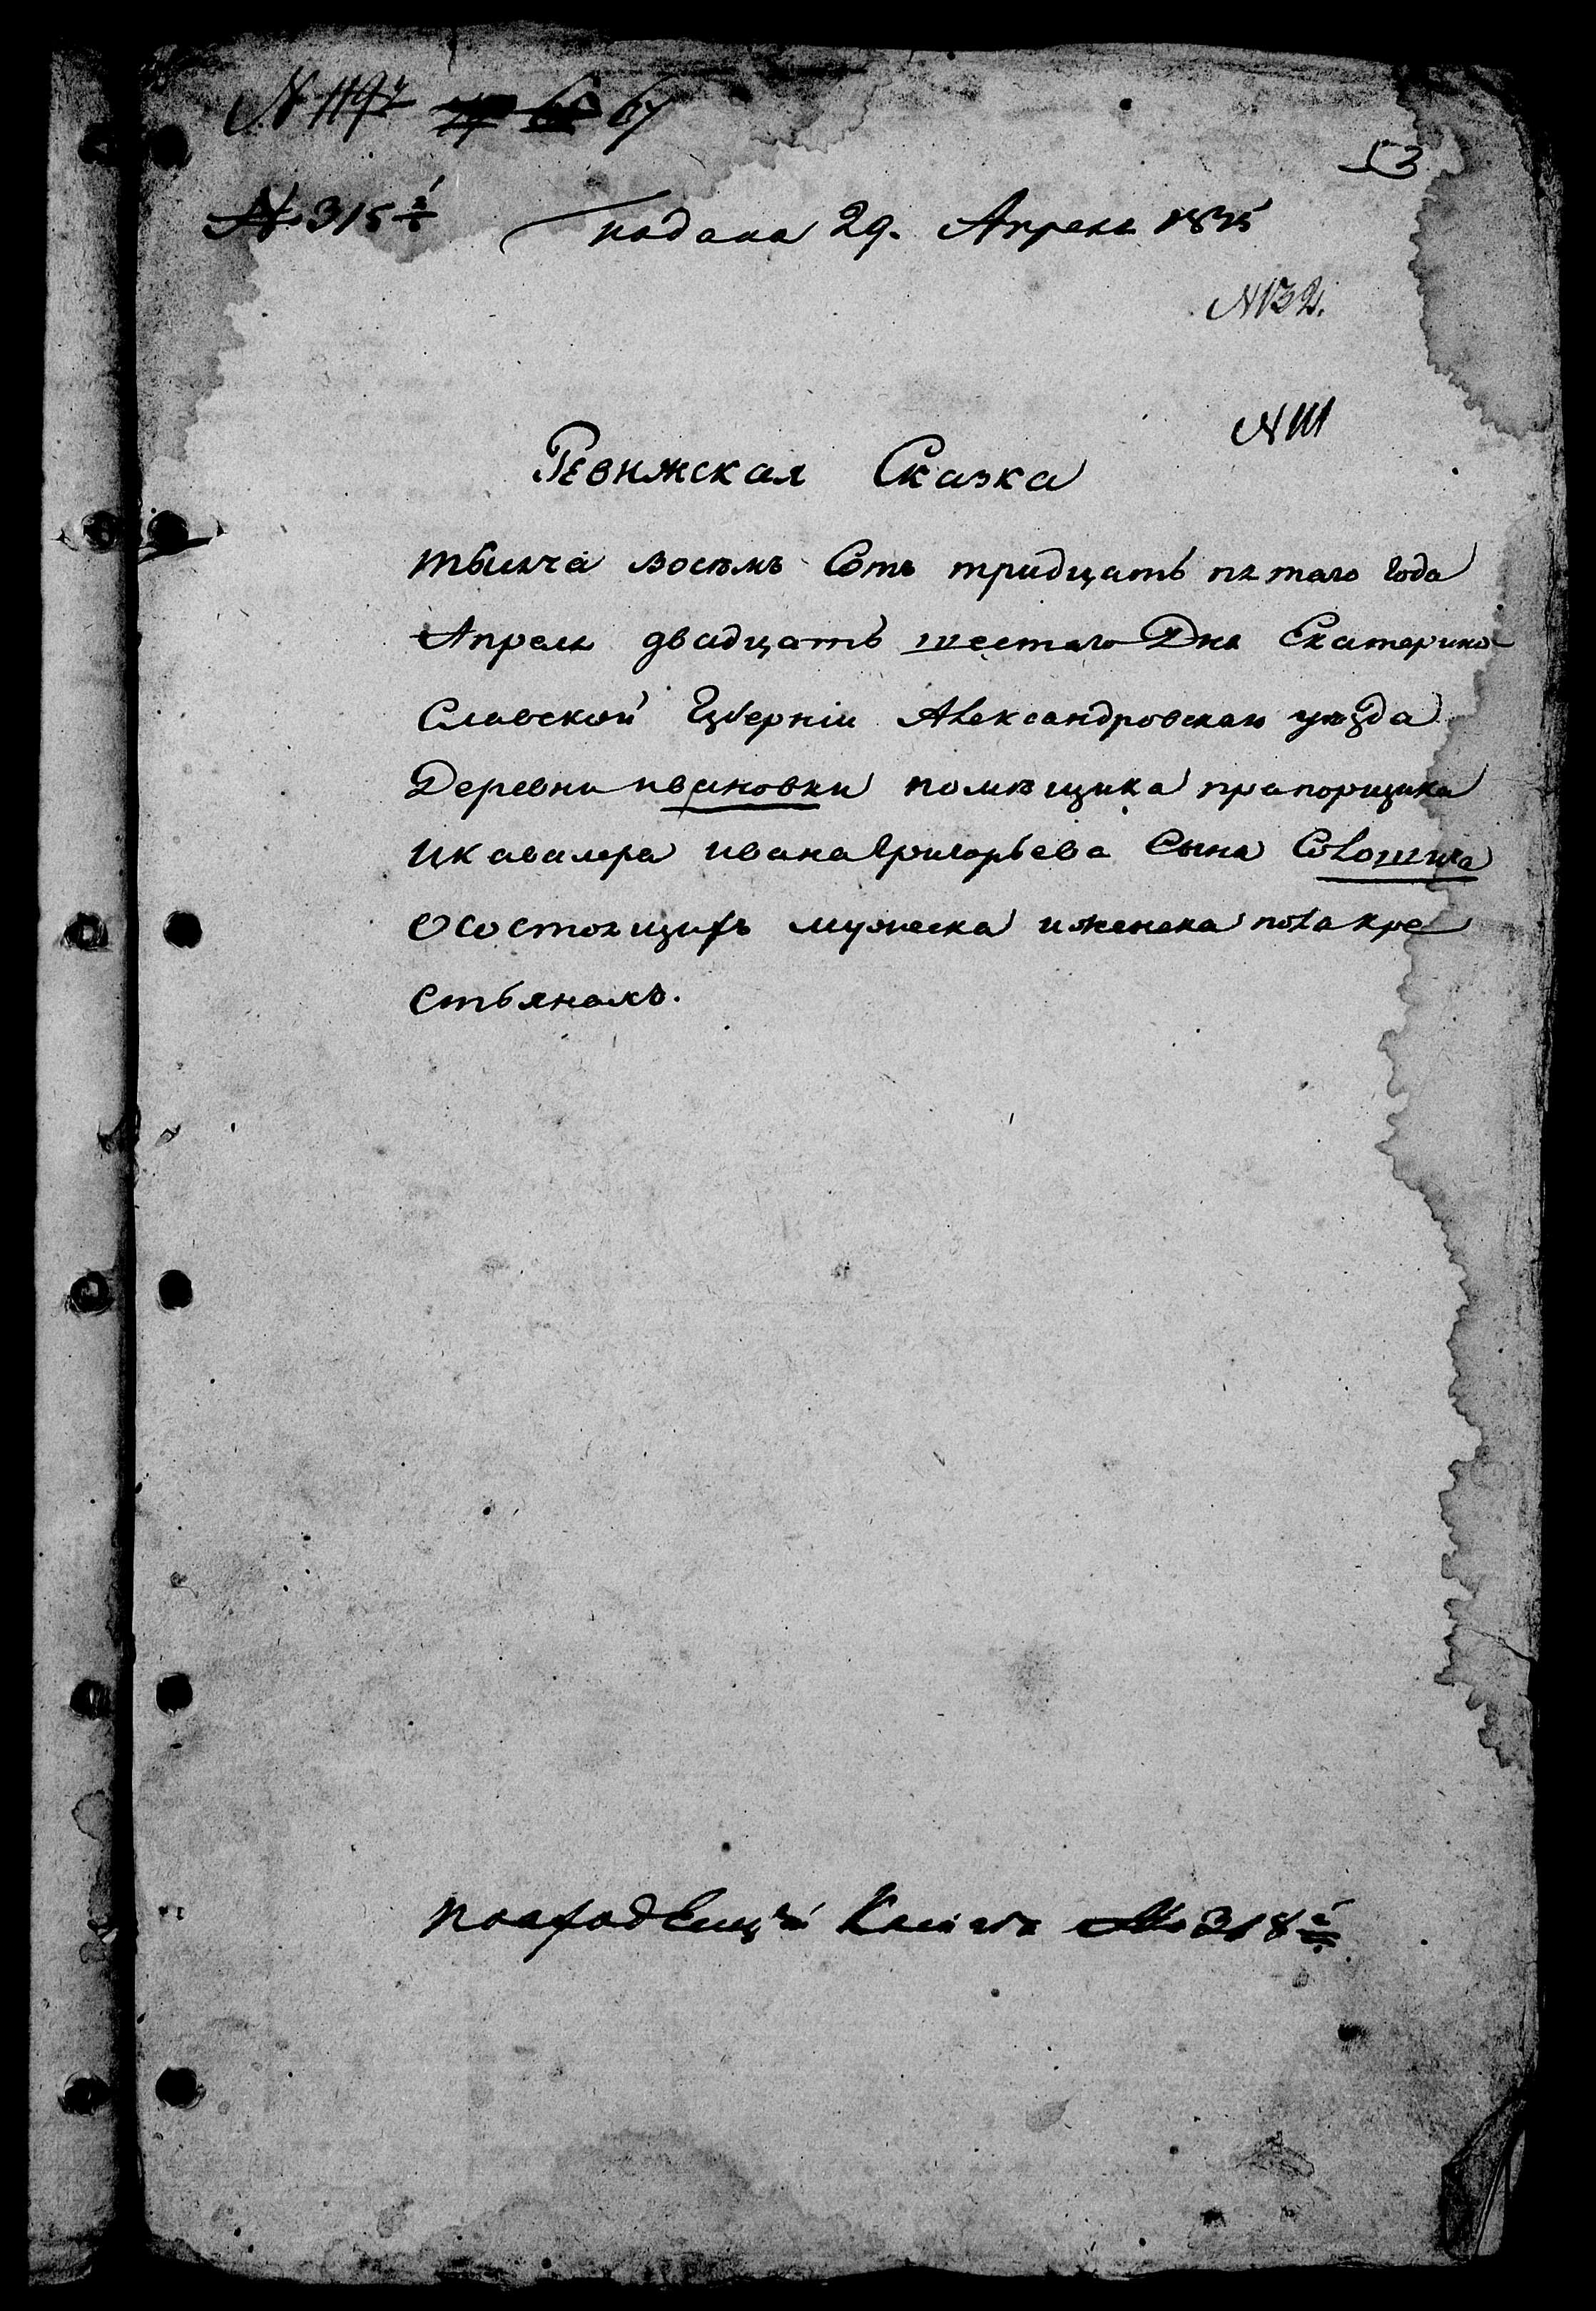 67
53
№ 315
подана 29. Апреля 1835
№ 32.
№ 111
Ревижская Сказка
тысяча восемь Сотъ тридцать пятаго года
Апреля двадцать шестаго Дня Екатерино
Славской Губерніи Александровскаго уезда
Деревни ивановки помѣщика прапорщика
и кавалера ивана Григорьева Сына
О состоящихъ мужеска и женска пола кре
стьянахъ.
№ 318